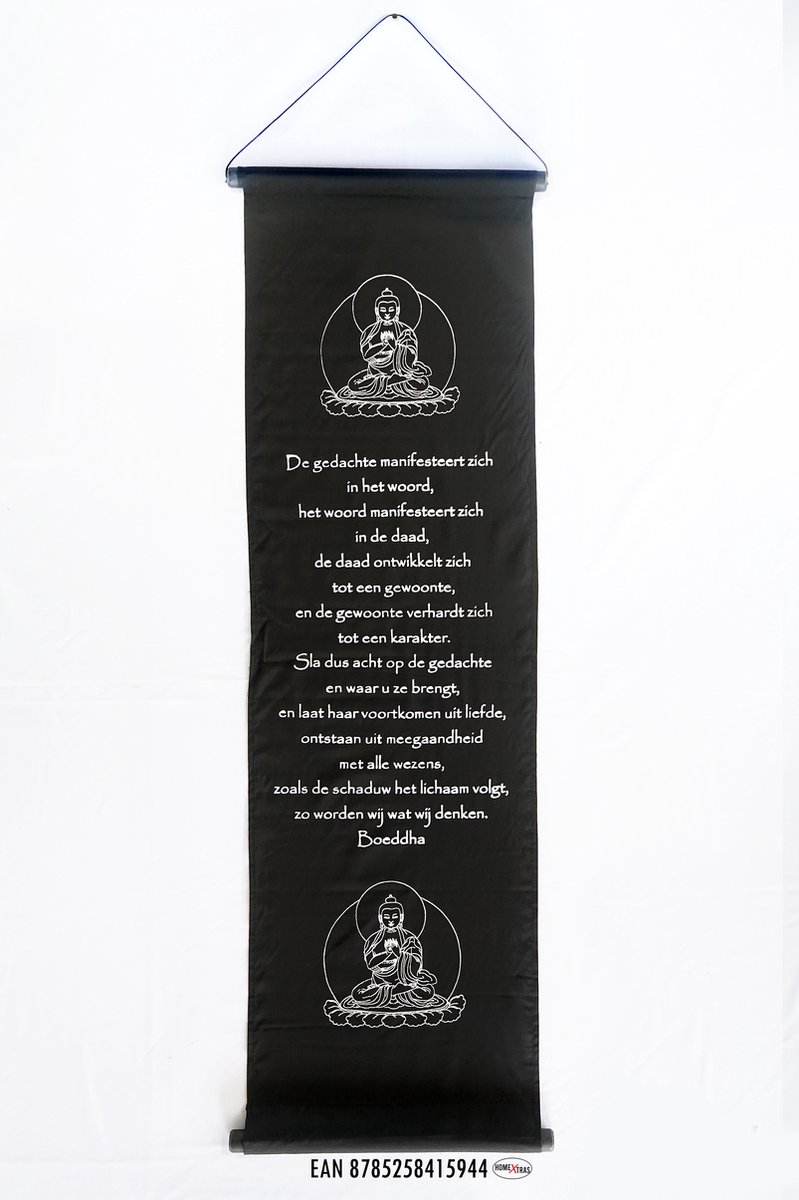 De gedachte manifesteert zich
in het woord,
het woord manifesteert zich
in de daad,
de daad ontwikkelt zich
tot een gewoonte,
en de gewoonte verhardt zich
tot een karakter.
Sla dus acht op de gedachte
en waar u ze brengt,
en laat haar voortkomen uit liefde,
ontstaan uit meegaandheid
met alle wezens,
zoals de schaduw het lichaam volgt,
zo worden wij wat wij denken.
Boeddha
EAN 8785258415944 HOMEXTRAS